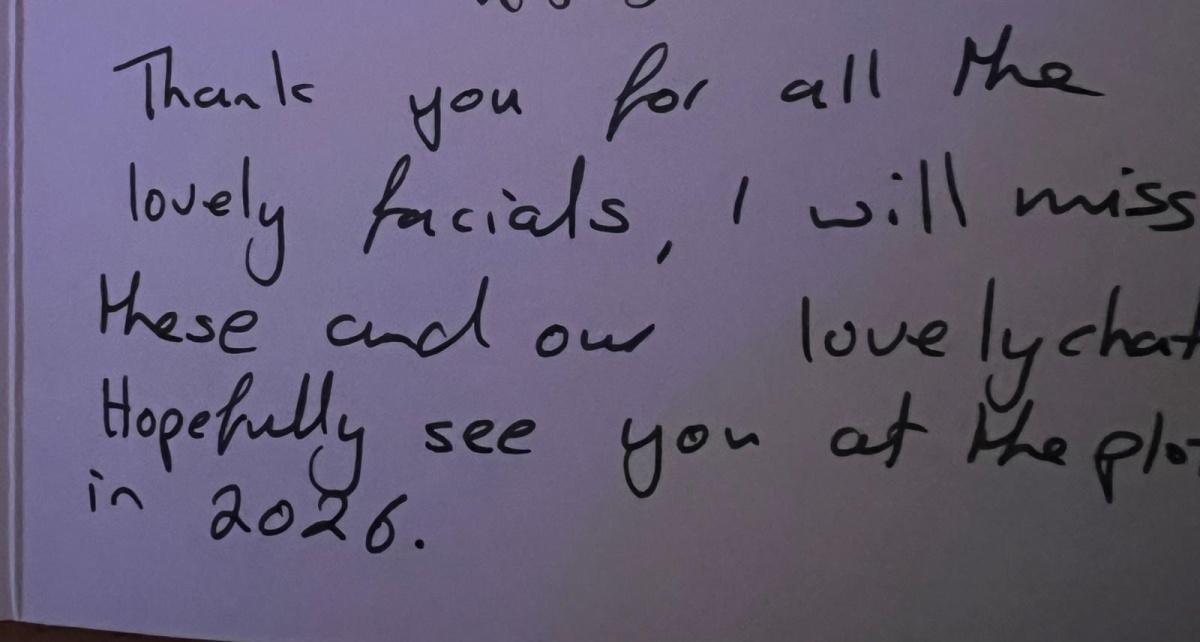 Thank you for all the
lovely facials, I will miss
these and our lovely chat
Hopefully see you at the plot
in 2026.